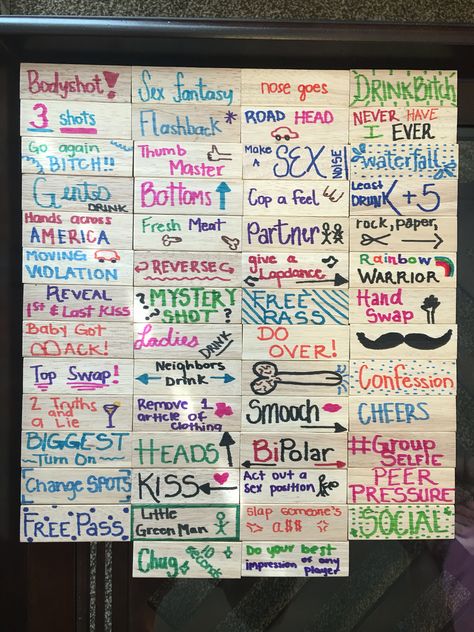 Bodyshot!
Sex fantasy
nose goes
DRINK Bitch
3 shots
Flashback*
ROAD HEAD
NEVER HAVE
I EVER
Go again
BITCH!!
Thumb
Master
Make
A SEX NOISE
waterfall
Gents
DRINK
Bottoms
Cop a feel
Least
DRUNK +5
Hands across
AMERICA
Fresh Meat
Partner
rock, paper,
MOVING
VIOLATION
REVERSE
give a
Lapdance
Rainbow
WARRIOR
REVEAL
1st & Last KISS
? MYSTERY
SHOT ?
FREE
PASS
Hand
Swap
Baby Got
BACK!
Ladies DRINK
DO
OVER!
Top Swap!
Neighbors
Drink
Confession
2 Truths
and
a Lie
Remove 1
article of
clothing
Smooch
CHEERS
BIGGEST
Turn On
HEADS
BiPolar
#Group
Selfie
Change SPOTS
KISS
Act out a
Sex position
PEER
PRESSURE
FREE PASS
Little
Green Man
Slap someone's
a$$
SOCIAL
Chug 10 seconds
Do your best
impression of any
player!